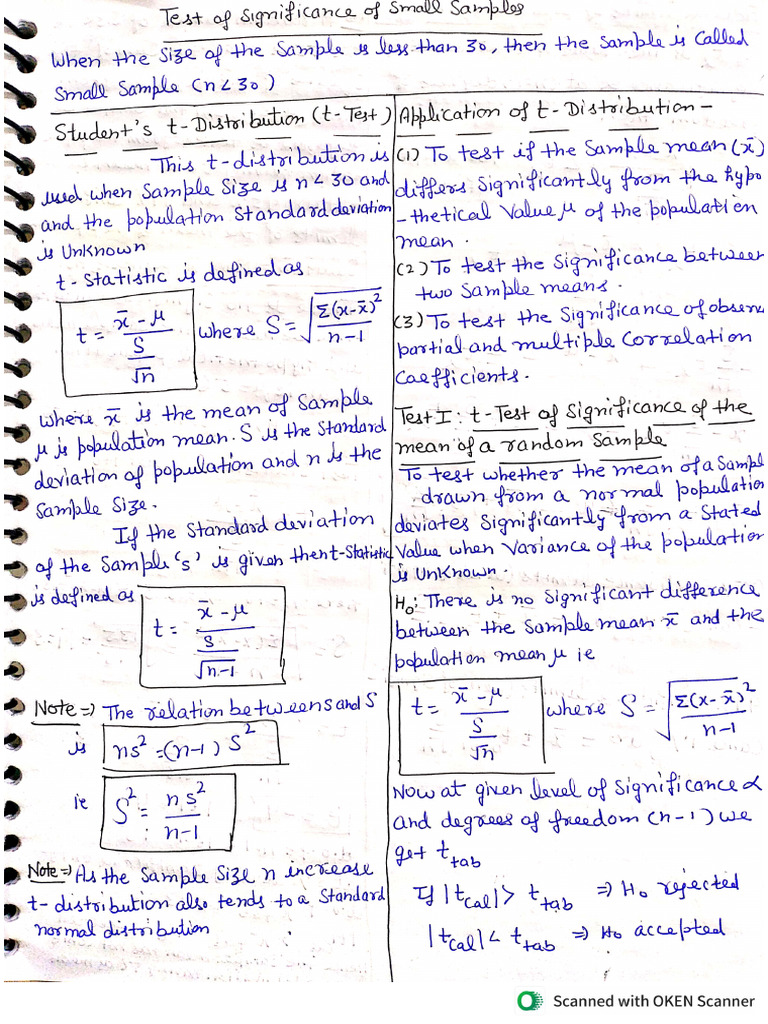 Test of Significance of Small Samples
When the Size of the Sample is less than 30, then the Sample is called
Small Sample (n<30)
Student's t-Distribution (t-Test)
This t-distribution is
used when Sample Size is n<30 and
and the population Standard deviation
is Unknown
t-Statistic is defined as
t = (x̄ - μ) / (S/√n) where S = √(Σ(x-x̄)²/(n-1))
where x̄ is the mean of Sample
μ is population mean. S is the Standard
deviation of population and n is the
Sample Size.
If the Standard deviation
of the Sample 's' is given then t-Statistic
is defined as
t = (x̄ - μ) / (s/√(n-1))
Note ⇒ The relation between s and S
is ns² = (n-1) S²
ie S² = ns²/(n-1)
Note ⇒ As the Sample Size n increase
t-distribution also tends to a Standard
normal distribution
Application of t-Distribution -
(1) To test if the Sample mean (x̄)
differs Significantly from the hypo
-thetical Value μ of the population
mean.
(2) To test the Significance between
two Sample means.
(3) To test the Significance of observ
partial and multiple Correlation
Coefficients.
Test I: t-Test of Significance of the
mean of a random Sample
To test whether the mean of a Sampl
drawn from a normal population
deviates Significantly from a Stated
Value when Variance of the population
is Unknown.
H₀: There is no Significant difference
between the Sample mean x̄ and the
population mean μ ie
t = (x̄ - μ) / (S/√n) where S = √(Σ(x-x̄)²/(n-1))
Now at given level of Significance α
and degrees of freedom (n-1) we
get t_tab
If |t_cal| > t_tab ⇒ H₀ rejected
|t_cal| < t_tab ⇒ H₀ accepted
Scanned with OKEN Scanner